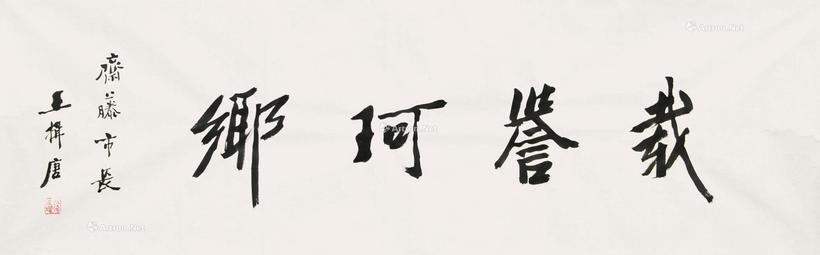 載譽珂鄉
齋藤市長
王揖唐
Artron.Net
Artron.Net
Artron.Net